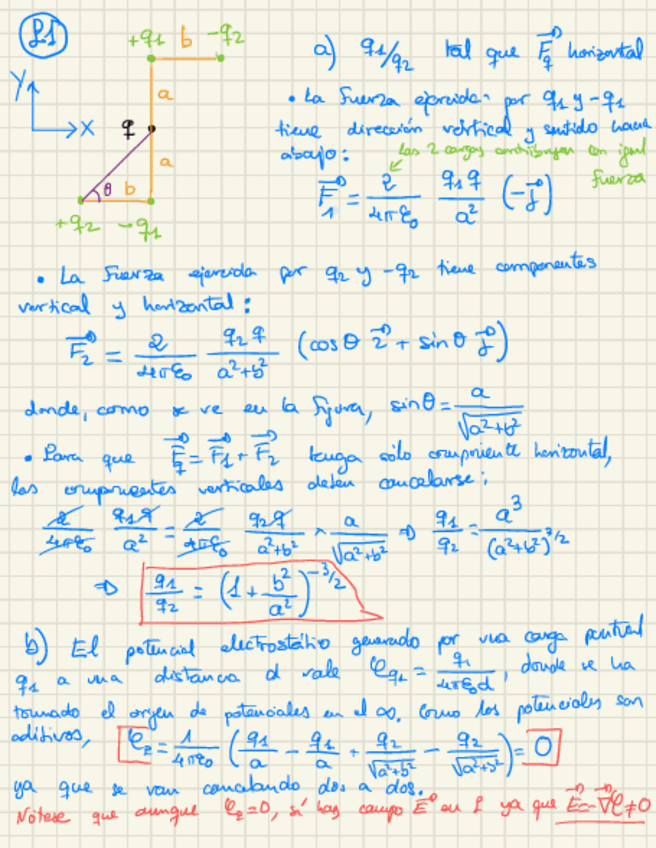 P1
+q₁ b -q₂
a) q₁/q₂ tal que F⃗_q horizontal
Y
a
• La fuerza ejercida por q₁ y -q₁
X
q
tiene dirección vertical y sentido hacia
abajo:
las 2 cargas contribuyen con igual
fuerza
a
θ b
F⃗₁ = 2/(4πε₀) q₁q/a² (-j⃗)
+q₂ -q₁
• La fuerza ejercida por q₂ y -q₂ tiene componentes
vertical y horizontal:
F⃗₂ = 2/(4πε₀) q₂q/(a²+b²) (cosθ i⃗ + sinθ j⃗)
donde, como se ve en la figura, sinθ = a/√(a²+b²)
• Para que F⃗_q = F⃗₁ + F⃗₂ tenga sólo componente horizontal,
las componentes verticales deben cancelarse:
2/(4πε₀) q₁q/a² = 2/(4πε₀) q₂q/(a²+b²) × a/√(a²+b²) ⇒ q₁/q₂ = a³/(a²+b²)^3/2
⇒ q₁/q₂ = (1 + b²/a²)^-3/2
b) El potencial electrostático generado por una carga puntual
q₁ a una distancia d vale φ_q₁ = q₁/(4πε₀d), donde se ha
tomado el origen de potenciales en el ∞. Como los potenciales son
aditivos, φ_q = 1/(4πε₀) (q₁/a - q₁/a + q₂/√(a²+b²) - q₂/√(a²+b²)) = 0
ya que se van cancelando dos a dos.
Nótese que aunque φ_q=0, sí hay campo E⃗ en P ya que E⃗=-∇⃗φ≠0